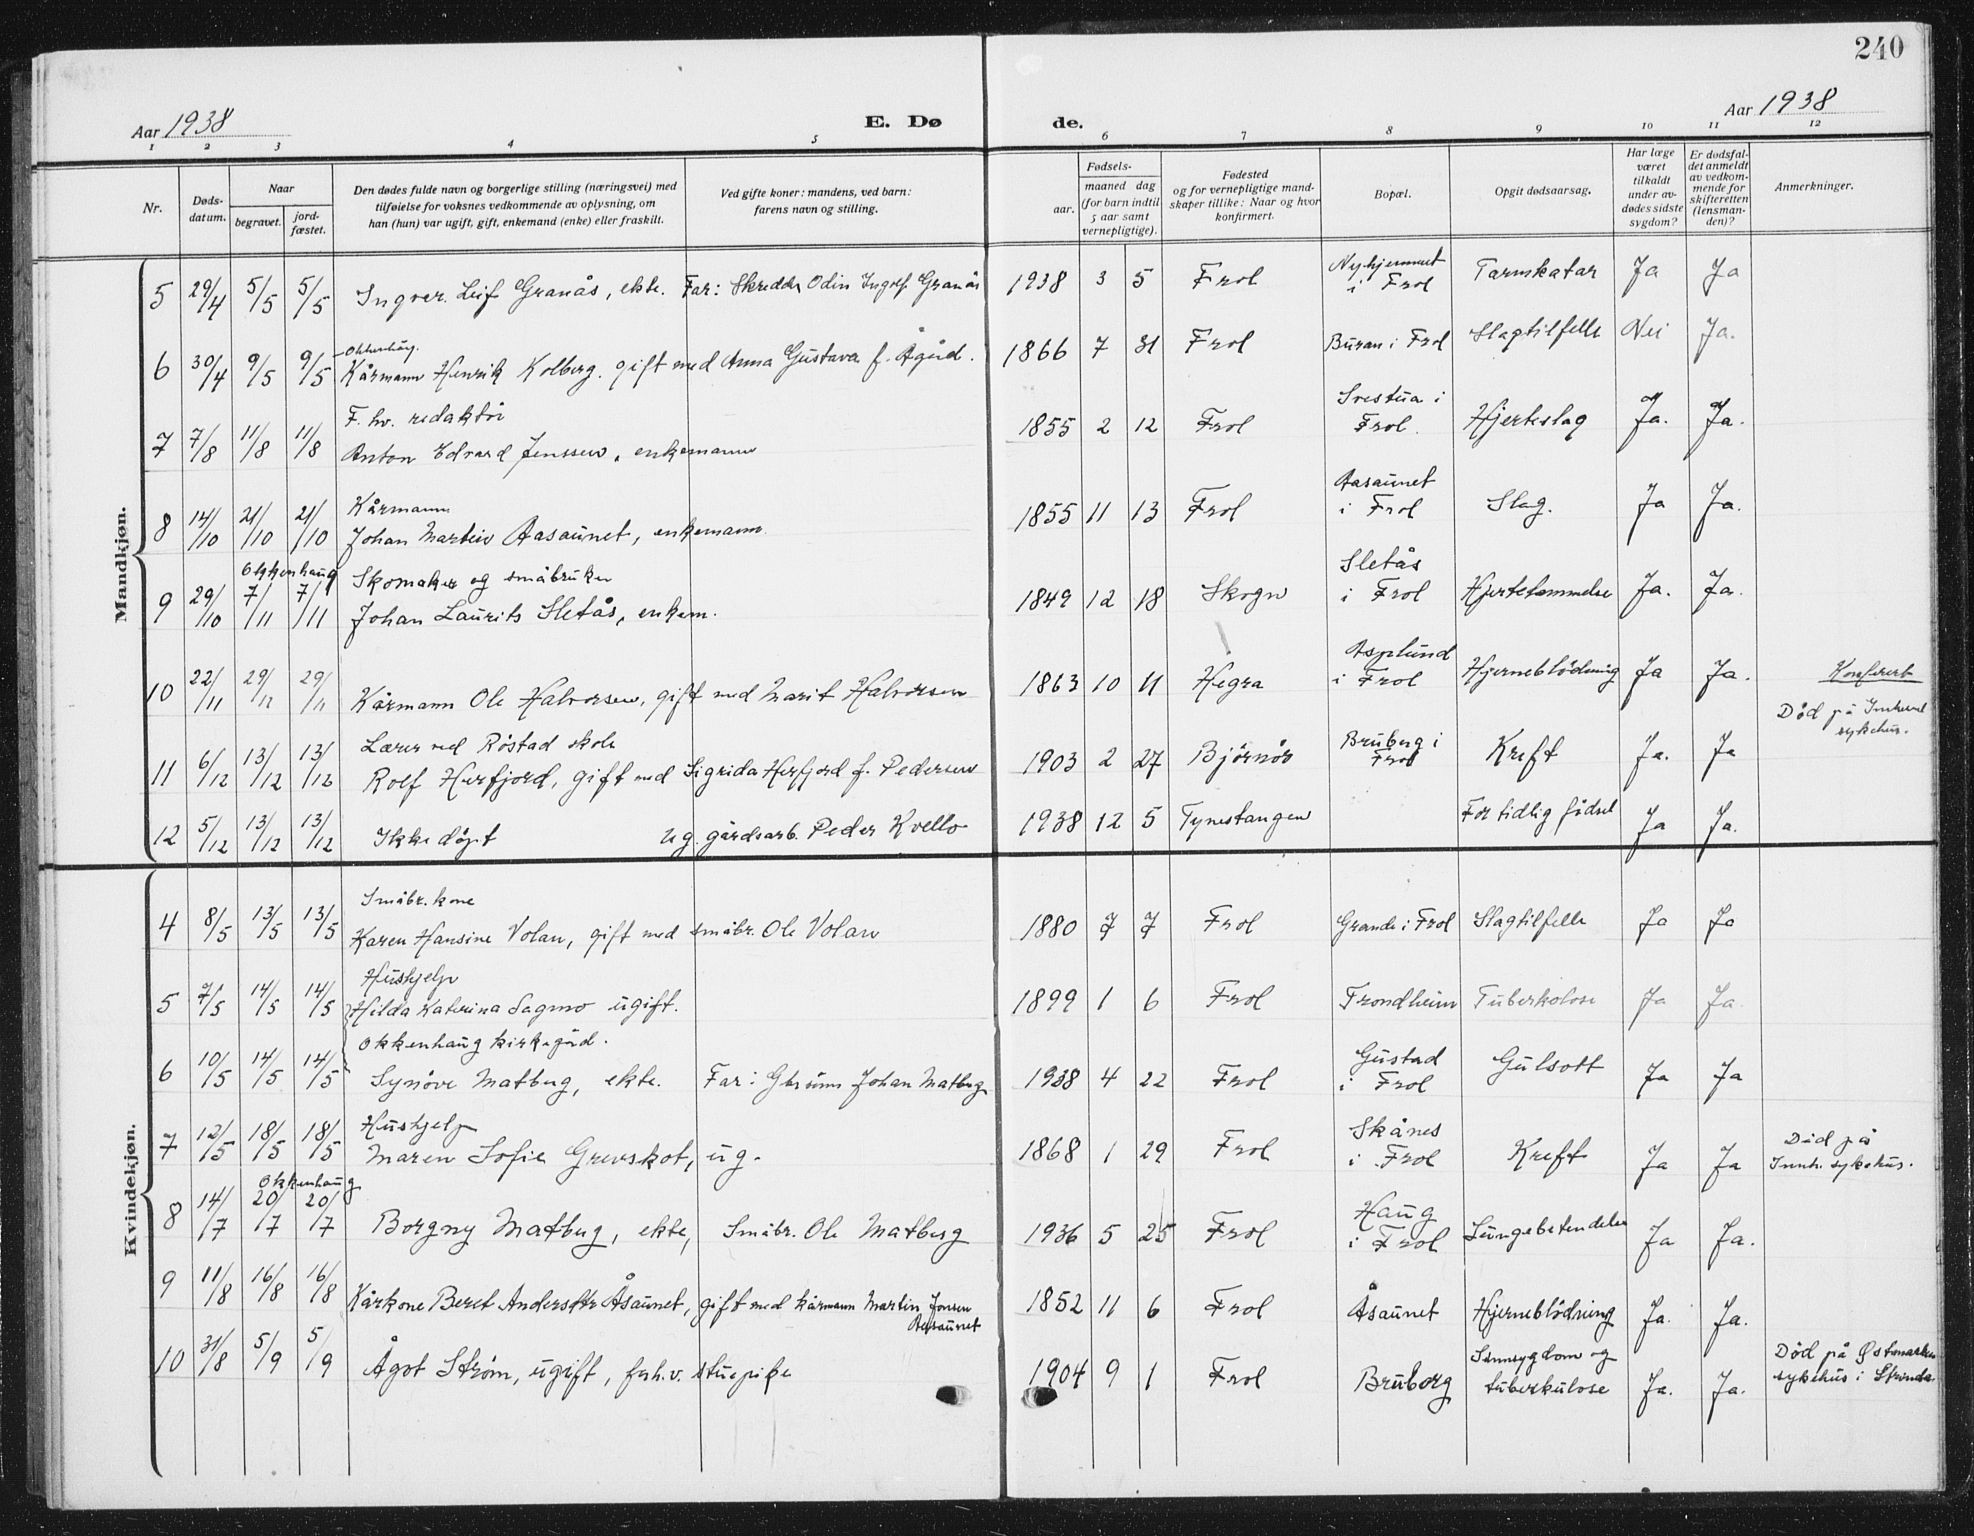 240
Aar 1938 E. Dø de. Aar 1938
1 2 3 4 5 6 7 8 9 10 11 12
Nr.
Døds-
datum.
Naar
begravet.
jord-
fæstet.
Den dødes fulde navn og borgerlige stilling (næringsvei) med
tilføielse for voksnes vedkommende av oplysning, om
han (hun) var ugift, gift, enkemand (enke) eller fraskilt.
Ved gifte koner: mandens, ved barn:
farens navn og stilling.
Fødsels-
aar.
maaned dag
(for barn indtil
5 aar samt
vernepligtige).
Fødested
og for vernepligtige mand-
skaper tillike: Naar og hvor
konfirmert.
Bopæl.
Opgit dødsaarsag.
Har læge
været
tilkaldt
under av-
dødes sidste
sygdom?
Er dødsfal-
det anmeldt
av vedkom-
mende for
skifteretten
(lensman-
den)?
Anmerkninger.
Mandkjøn.
5 29/4 5/5 5/5 Ingvar Leif Granås, ekte. Far: Skredder Odin Ingolf Granås 1938 3 5 Frol Nyhjemmet i Frol Tarmkatar Ja Ja
Okkenhaug.
6 30/4 9/5 9/5 Kårmann Henrik Kolberg. gift med Anna Gustava f. Ågård. 1866 7 31 Frol Buran i Frol Slagtilfelle Nei Ja.
F. hv. redaktør
7 7/8 11/8 11/8 Anton Edvard Jenssen, enkemann 1855 2 12 Frol Frol. Hjerteslag Ja. Ja.
Kårmann
8 14/10 21/10 21/10 Johan Martin Aasaunet, enkemann. 1855 11 13 Frol Aasaunet i Frol Slag. Ja Ja.
Okkenhaug Skomaker og småbruker
9 29/10 7/11 7/11 Johan Laurits Sletås, enkem. 1849 12 18 Skogn Sletås i Frol Hjertelammelse Ja. Ja.
10 22/11 29/11 29/11 Kårmann Ole Halvorsen, gift med Marit Halvorsen 1863 10 11 Hegra Asplund i Frol Hjerneblödning Ja Ja. Konferert
Lærer ved Røstad skole
11 6/12 13/12 13/12 Rolf Herfjord, gift med Sigrida Herfjord f. Pedersen 1903 2 27 Bjørnør Bruberg i Frol Kreft Ja. Ja Död på sykehus.
12 5/12 13/12 13/12 Ikke døpt ug. gårdsarb. Peder Kvello 1938 12 5 Tynestangen For tidlig födsel Ja Ja.
Kvindekjøn.
Småbr. kone
4 8/5 13/5 13/5 Karen Hansine Volan, gift med småbr. Ole Volan 1880 7 7 Frol Grande i Frol Slagtilfelle Ja Ja
Hushjelp
5 7/5 14/5 14/5 Hilda Katerina Sagmo ugift. 1899 1 6 Frol Trondheim Tuberkolose Ja Ja.
Okkenhaug kirkegård.
6 10/5 14/5 14/5 Synöve Matberg, ekte. Far: Johan Matberg 1938 4 22 Frol Gustad i Frol Gulsott Ja Ja
Hushjelp
7 12/5 18/5 18/5 Maren Sofie Grevskot, ug. 1868 1 29 Frol Skånes i Frol Kreft Ja Ja Död på Innh. sykehus.
Okkenhaug
8 14/7 20/7 20/7 Borgny Matberg, ekte, Småbr. Ole Matberg 1936 5 25 Frol Haug i Frol Lungebetendelse Ja Ja.
9 11/8 16/8 16/8 Kårkone Beret Andersdtr Åsaunet, gift med kårmann Martin Jonsen Aasaunet 1852 11 6 Frol Åsaunet Hjerneblödning Ja. Ja.
10 31/8 5/9 5/9 Ågot Strøm, ugift, forh.v. stuepike 1904 9 1 Frol Bruborg Sinnsygdom og tuberkulose Ja. Ja. Död på Østmarken sykehus i Strinda.